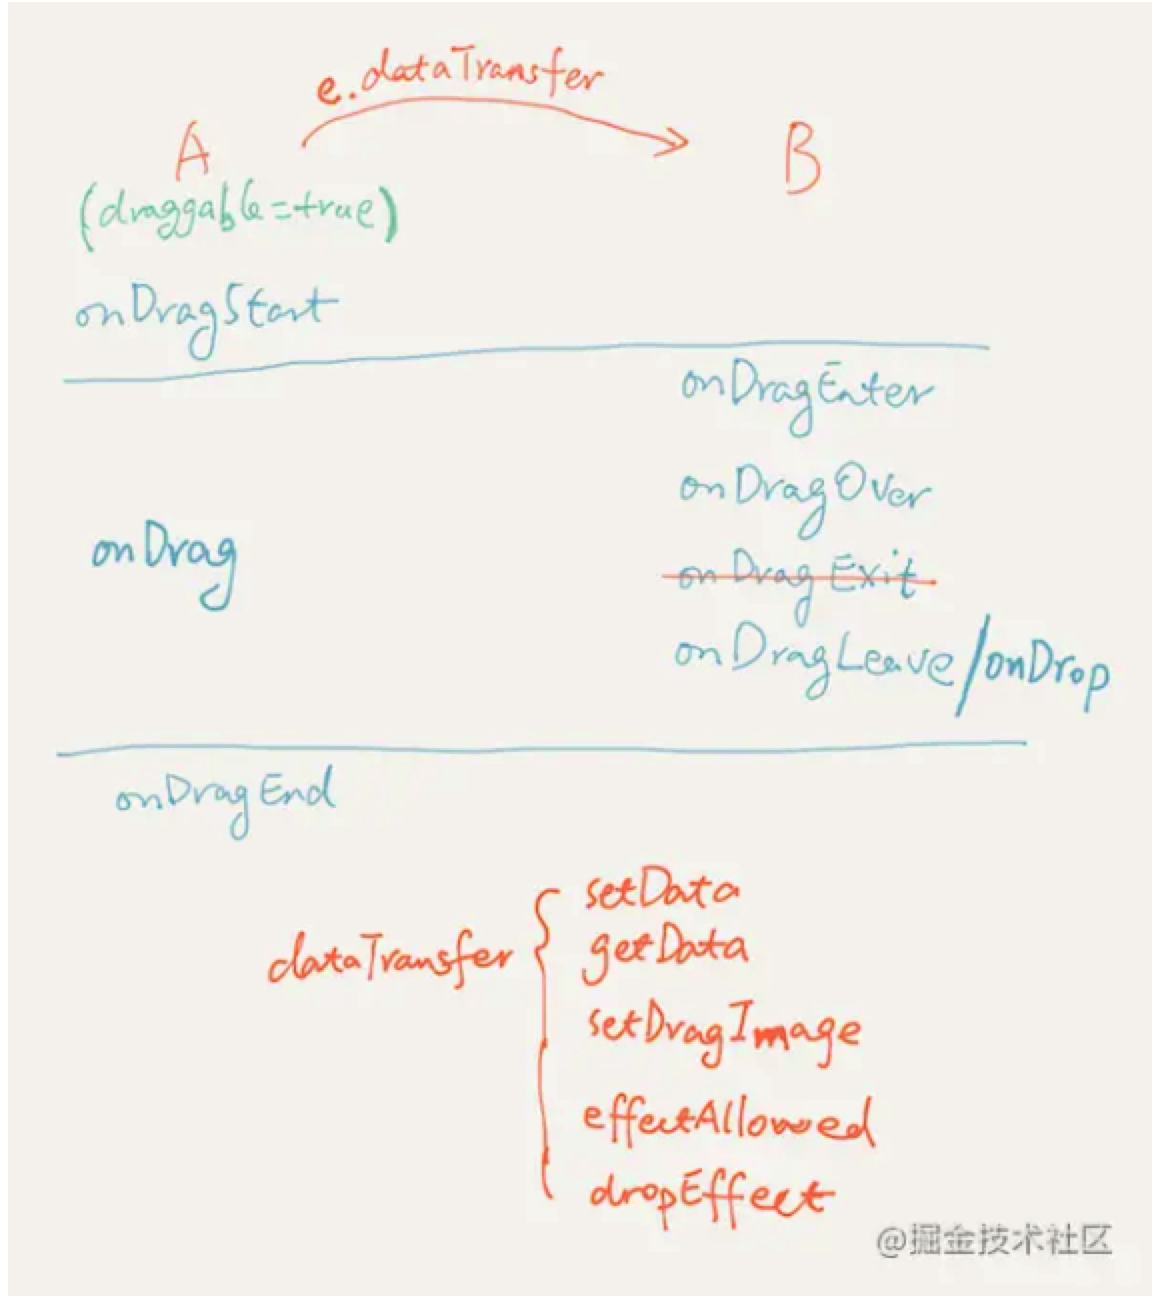 e.dataTransfer
A
B
(draggable=true)
onDragStart
onDragEnter
onDragOver
onDrag
onDragExit
onDragLeave/onDrop
onDragEnd
setData
dataTransfer
getData
setDragImage
effectAllowed
dropEffect
@掘金技术社区